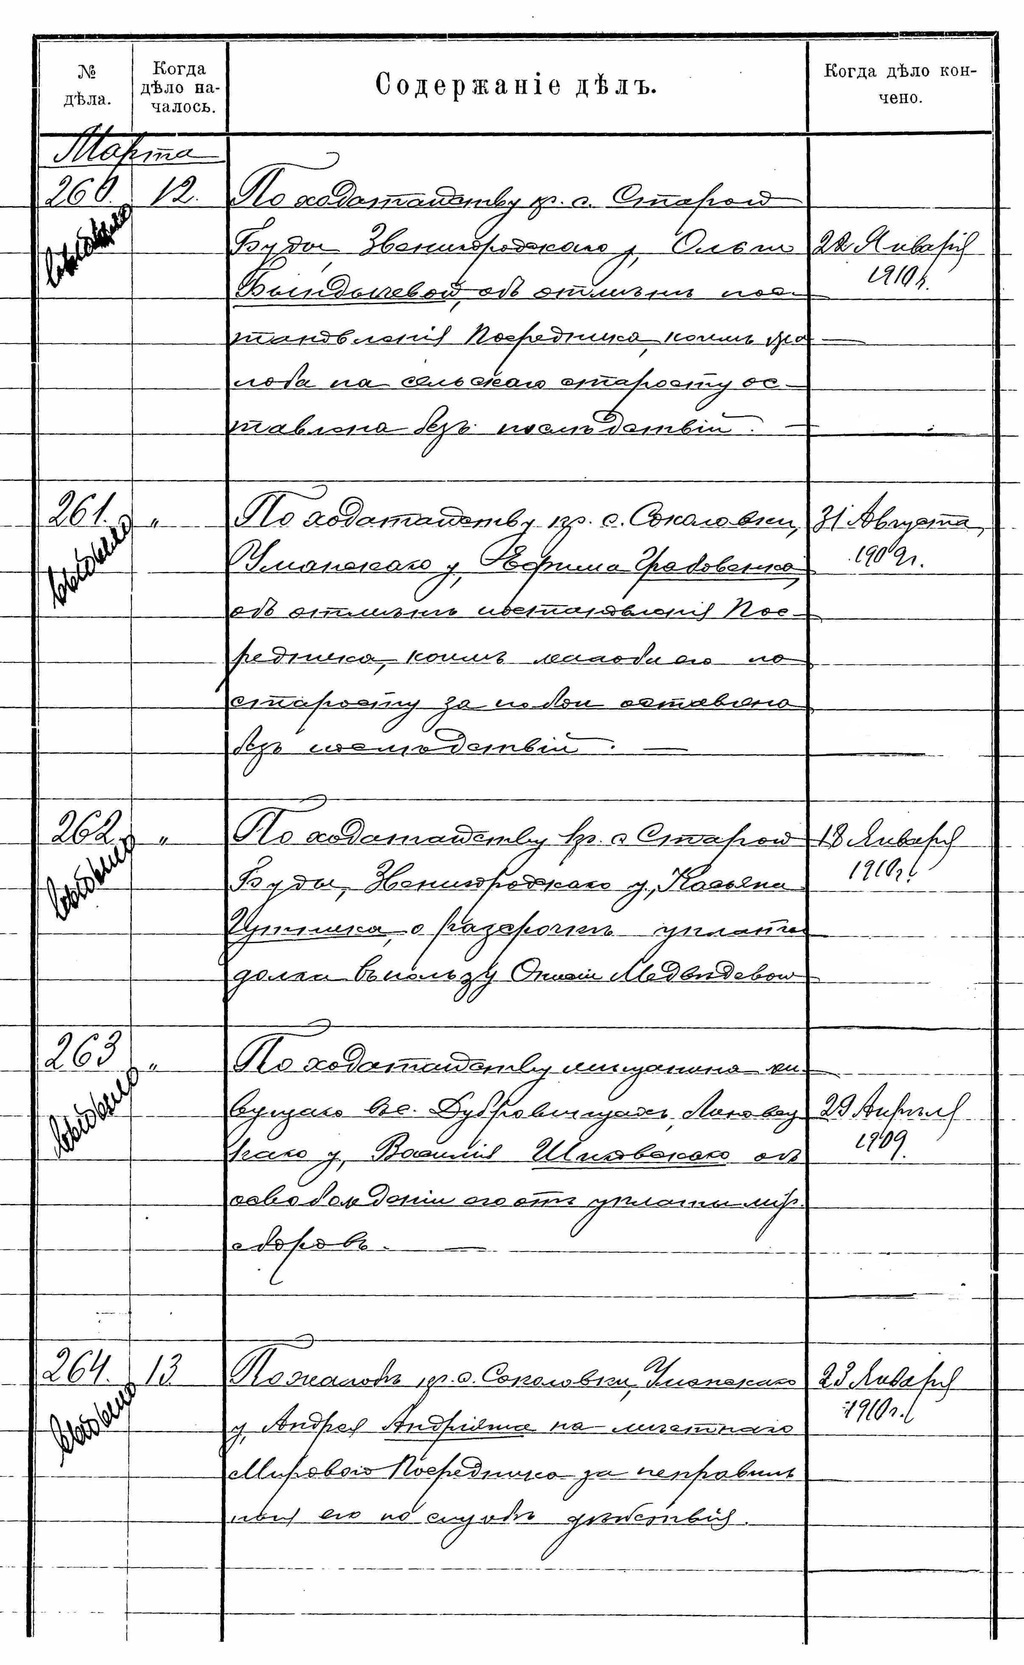 № дѣла.
Когда дѣло на-чалось.
Содержаніе дѣлъ.
Когда дѣло кон-чено.
Марта
260. 12. По ходатайству кр. с. Старой
Буды, Звенигородскаго у, Ольги 22 Января
Бындычевой, объ отмѣнѣ пос- 1910 г.
тановленія Посредника, коимъ жа
лоба на сельскаго старосту ос-
тавлена безъ послѣдствій. —
261. „ По ходатайству кр. с. Соколовки, 31 Августа
Уманскаго у, Ефима Грабовенко, 1909 г.
объ отмѣнѣ постановленія Пос-
редника, коимъ жалоба его на
старосту за побои оставлена
безъ послѣдствій. —
262 „ По ходатайству кр. с Старой 18 Января
Буды, Звенигородскаго у, Касьяна 1910 г.
о разсрочкѣ уплаты
долга въ пользу Медвѣдевой
263 „ По ходатайству мѣщанина жи
вущаго въ с. Дубровинцахъ, Липовец 29 Апрѣля
каго у, Василія объ 1909.
освобожденіи его отъ уплаты мір.
сборовъ. —
264. 13. По жалобѣ кр. с. Соколовки, Уманскаго 23 Января
у, Андрея Андріяша на мѣстнаго 1910 г.
Мирового Посредника за неправиль
ныя его по службѣ дѣйствія.